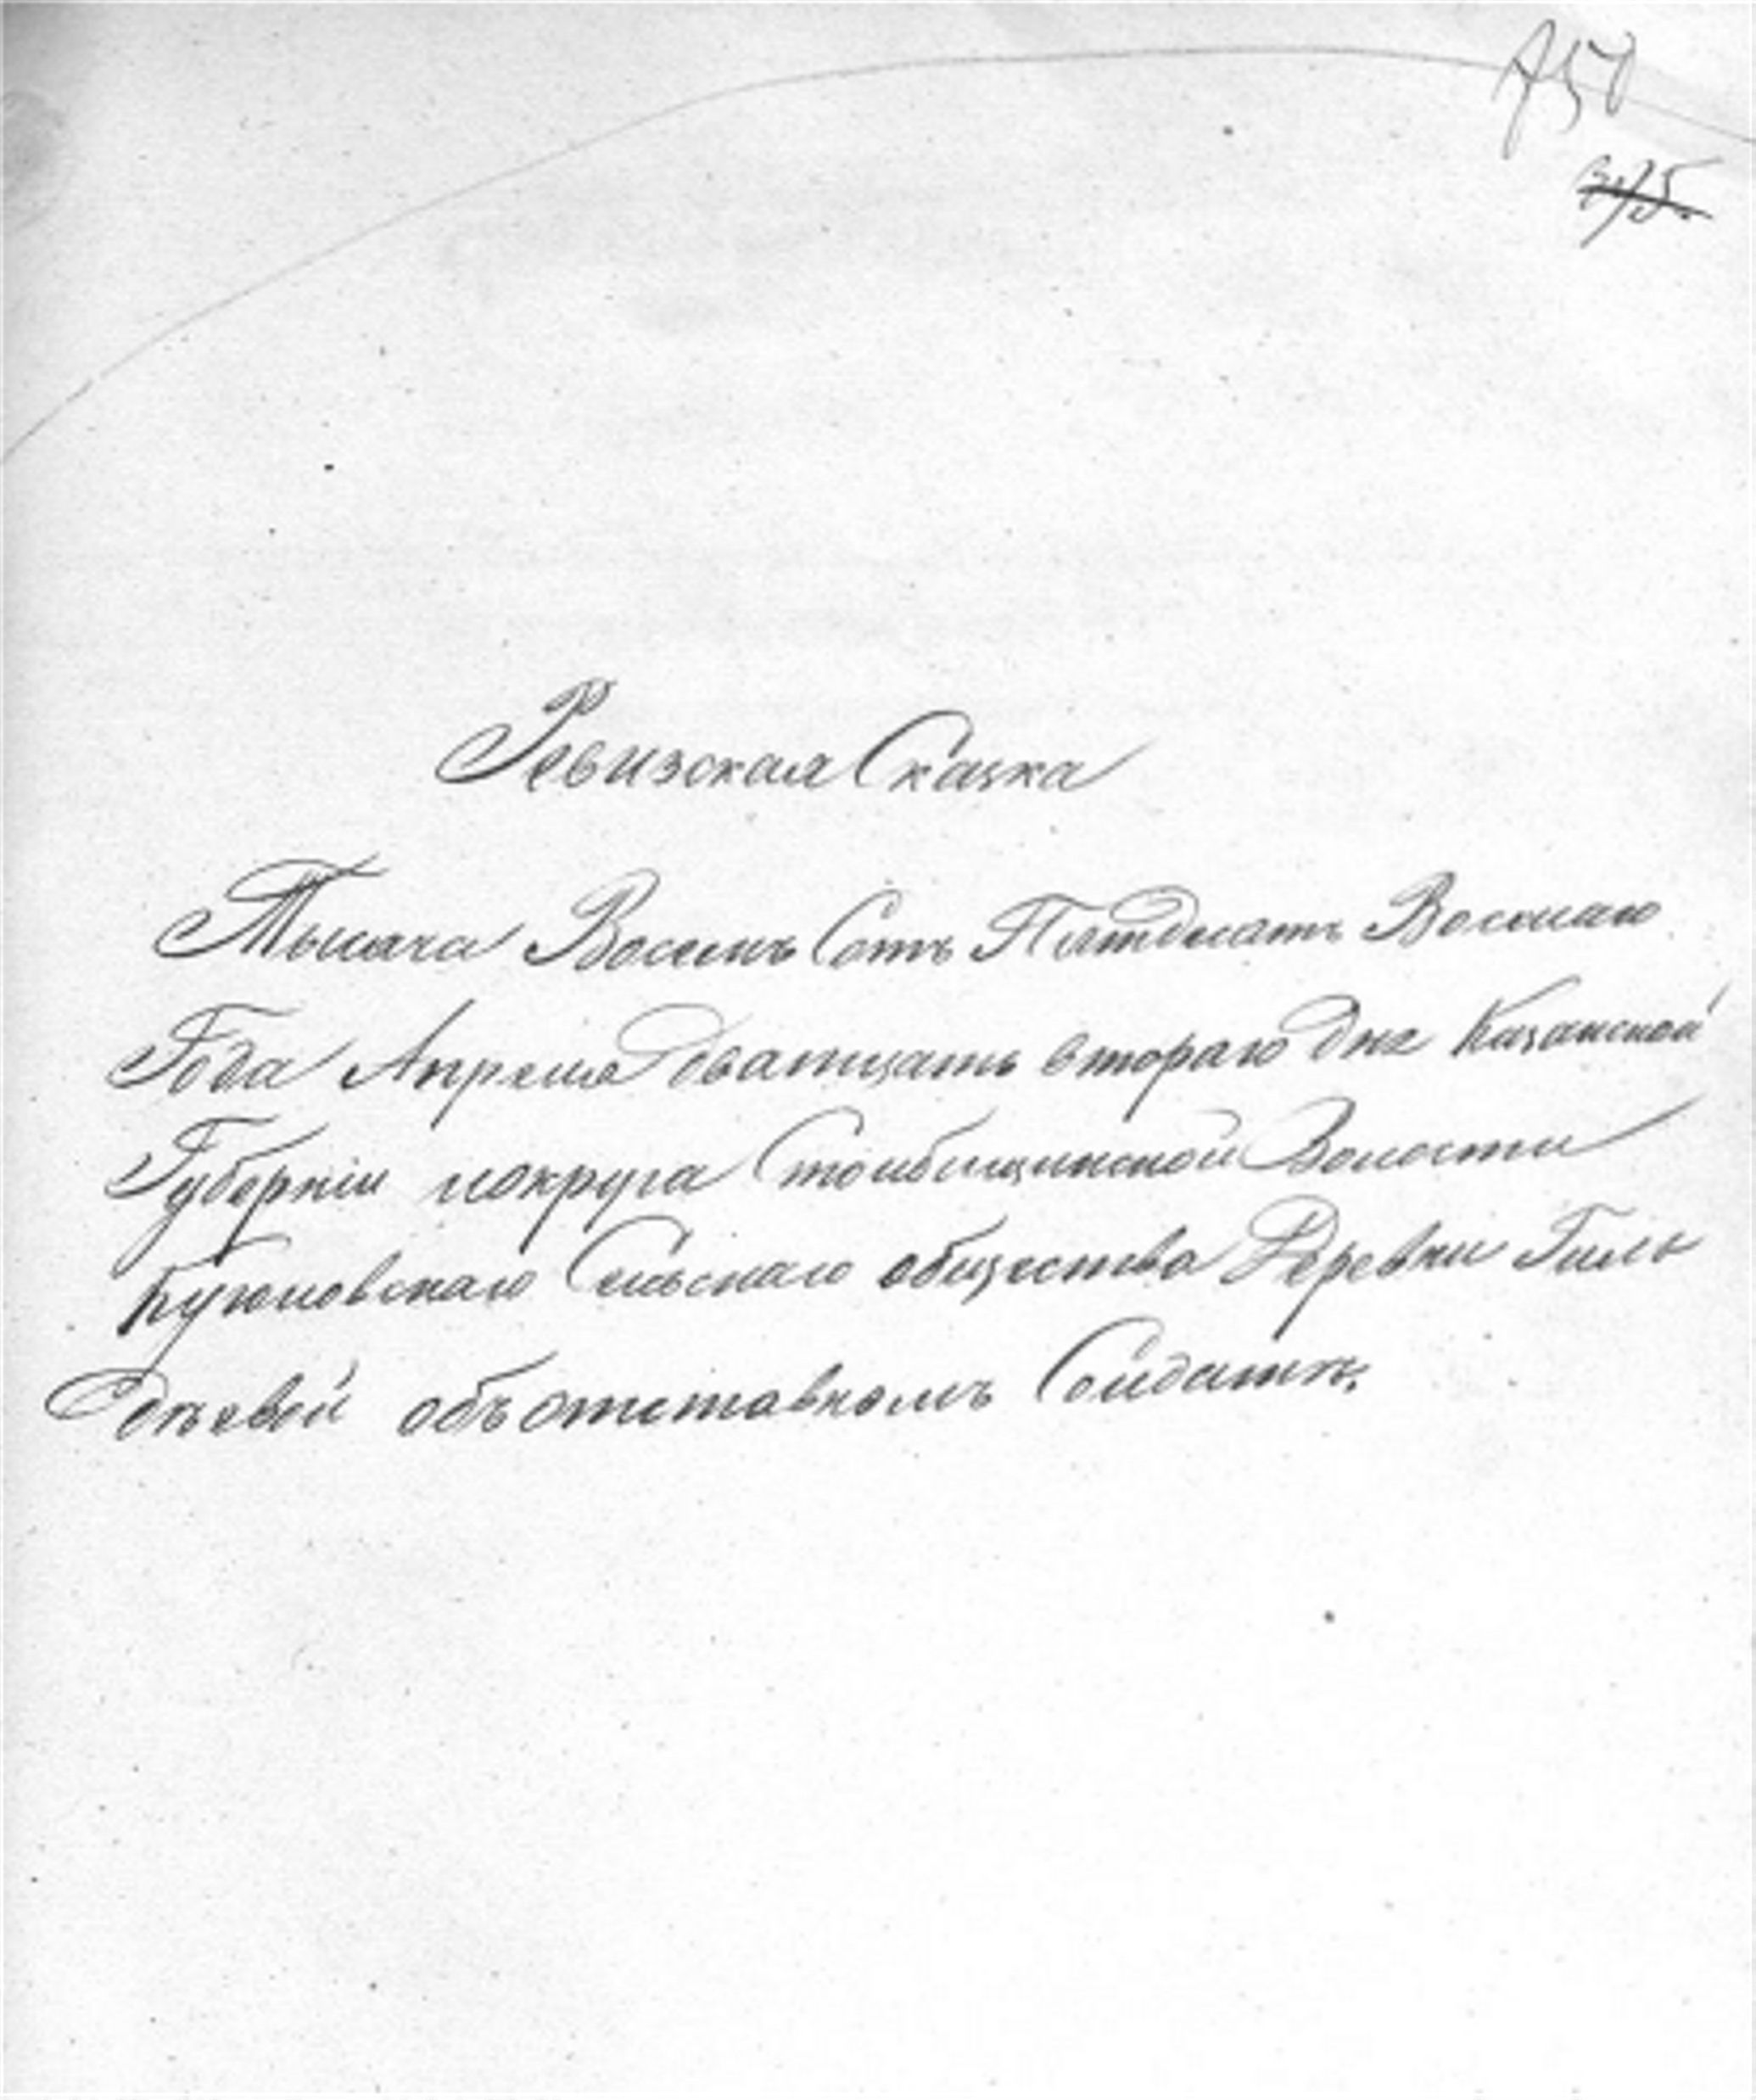 750
375.
Ревизская Сказка
Тысяча Восемь Сотъ Пятдесатъ Восмаго
Года Апреля дватцать втораго дня Казанской
Губерніи и округа Столбищинской Волости
Куюковскаго Сельскаго общества Деревни Гиль
дѣевой объ отставномъ Солдатѣ.